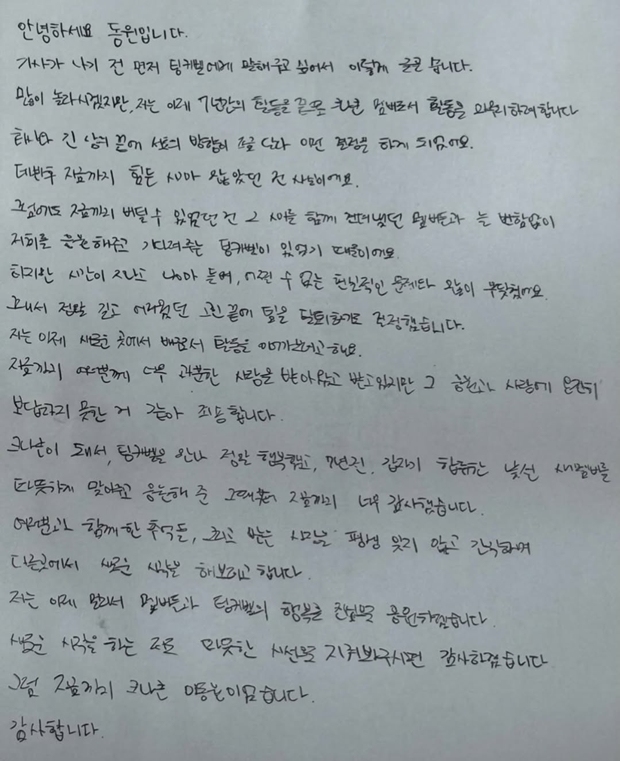 안녕하세요 동원입니다.
기사가 나기 전 먼저 팅커벨에게 말해주고 싶어서 이렇게 글을 씁니다.
많이 놀라시겠지만, 저는 이제 7년간의 활동을 끝으로 크나큰 멤버로서 활동을 마무리하려합니다
회사와 긴 상의 끝에 서로의 방향이 조금 달라 이런 결정을 하게 되었어요.
데뷔후 지금까지 힘든 시간이 많았던 건 사실이에요.
그럼에도 지금까지 버틸 수 있었던 건 그 시간을 함께 견뎌냈던 멤버들과 늘 변함없이
저희를 응원해주고 기다려주는 팅커벨이 있었기 때문이에요.
하지만 시간이 지나고 나이가 들며, 어쩔 수 없는 현실적인 문제와 많이 부딪혔어요.
그래서 정말 길고 어려웠던 고민 끝에 팀을 탈퇴하기로 결정했습니다.
저는 이제 새로운 곳에서 배우로서 활동을 이어가보려고해요.
지금까지 여러분께 너무 과분한 사랑을 받아왔고 받고있지만 그 응원과 사랑에 온전히
보답하지 못한 거 같아 죄송합니다.
크나큰이 돼서, 팅커벨을 만나 정말 행복했고, 7년전, 갑자기 합류한 낯선 새멤버를
따뜻하게 맞아주고 응원해 준 그때부터 지금까지 너무 감사했습니다.
여러분과 함께한 추억들, 그리고 받은 사랑을 평생 잊지 않고 간직하며
다른곳에서 새로운 시작을 해보려고 합니다.
저는 이제 멀리서 멤버들과 팅커벨의 행복을 진심으로 응원하겠습니다.
새로운 시작을 하는 저를 따뜻한 시선으로 지켜봐주시면 감사하겠습니다
그럼 지금까지 크나큰 이동원이었습니다.
감사합니다.